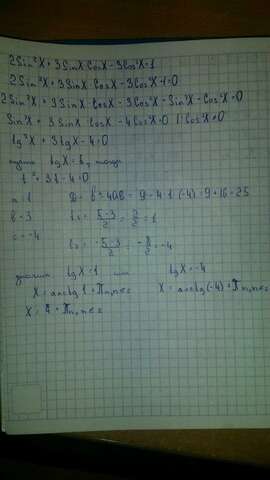 2Sin²X + 3SinX CosX - 3Cos²X = 1
2Sin²X + 3SinX CosX - 3Cos²X - 1 = 0
2Sin²X + 3SinX CosX - 3Cos²X - Sin²X - Cos²X = 0
Sin²X + 3SinX CosX - 4Cos²X = 0 | : Cos²X ≠ 0
tg²X + 3tgX - 4 = 0
tgX = t, тогда
t² + 3t - 4 = 0
a = 1 D = b² - 4ac = 9 - 4·1·(-4) = 9 + 16 = 25
b = 3 t₁ = 5-3/2 = 2/2 = 1
c = -4
t₂ = -5-3/2 = -8/2 = -4
tgX = 1 или tgX = -4
X = arctg 1 + πn, n∈z X = arctg(-4) + πn, n∈z
πn, n∈z